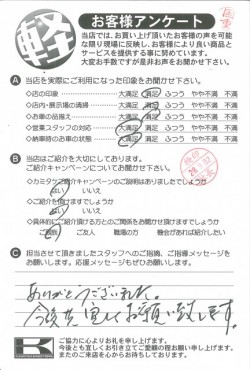 軽
お客様アンケート
当店では、お買い上げ頂いたお客様の声を可能
な限り現場に反映し、お客様により良い商品と
サービスを提供する事に努めています。
大変お手数ですが是非お声をお聞かせ下さい。
A 当店を実際にご利用になった印象をお聞かせ下さい。
◇店の印象 大満足 満足 ふつう やや不満 不満
◇店内・展示場の清掃 大満足 満足 ふつう やや不満 不満
◇お車の品揃え 大満足 満足 ふつう やや不満 不満
◇営業スタッフの対応 大満足 満足 ふつう やや不満 不満
◇納車時のお車の状態 大満足 満足 ふつう やや不満 不満
B 当店はご紹介を大切にしております。
ご紹介キャンペーンについてお聞かせ下さい。
◇カミタケご紹介キャンペーンのご説明はありましたでしょうか
はい いいえ
◇ご紹介を頂けますでしょうか
はい いいえ
◇具体的にご紹介頂ける方とのご関係をお聞かせ頂けますでしょうか
ご親族 ご友人 職場の方 機会があれば紹介したい
C 担当させて頂きましたスタッフへのご指摘、ご指導メッセージを
お願いします。応援メッセージもぜひお願いします。
ありがとうございました。
今後共宜しくお願い致します。
ご協力に心よりお礼を申し上げます。
今後とも宜しくお引き立てご愛顧の程お願い申し上げます。
またのご来店を心からお待ちしております。